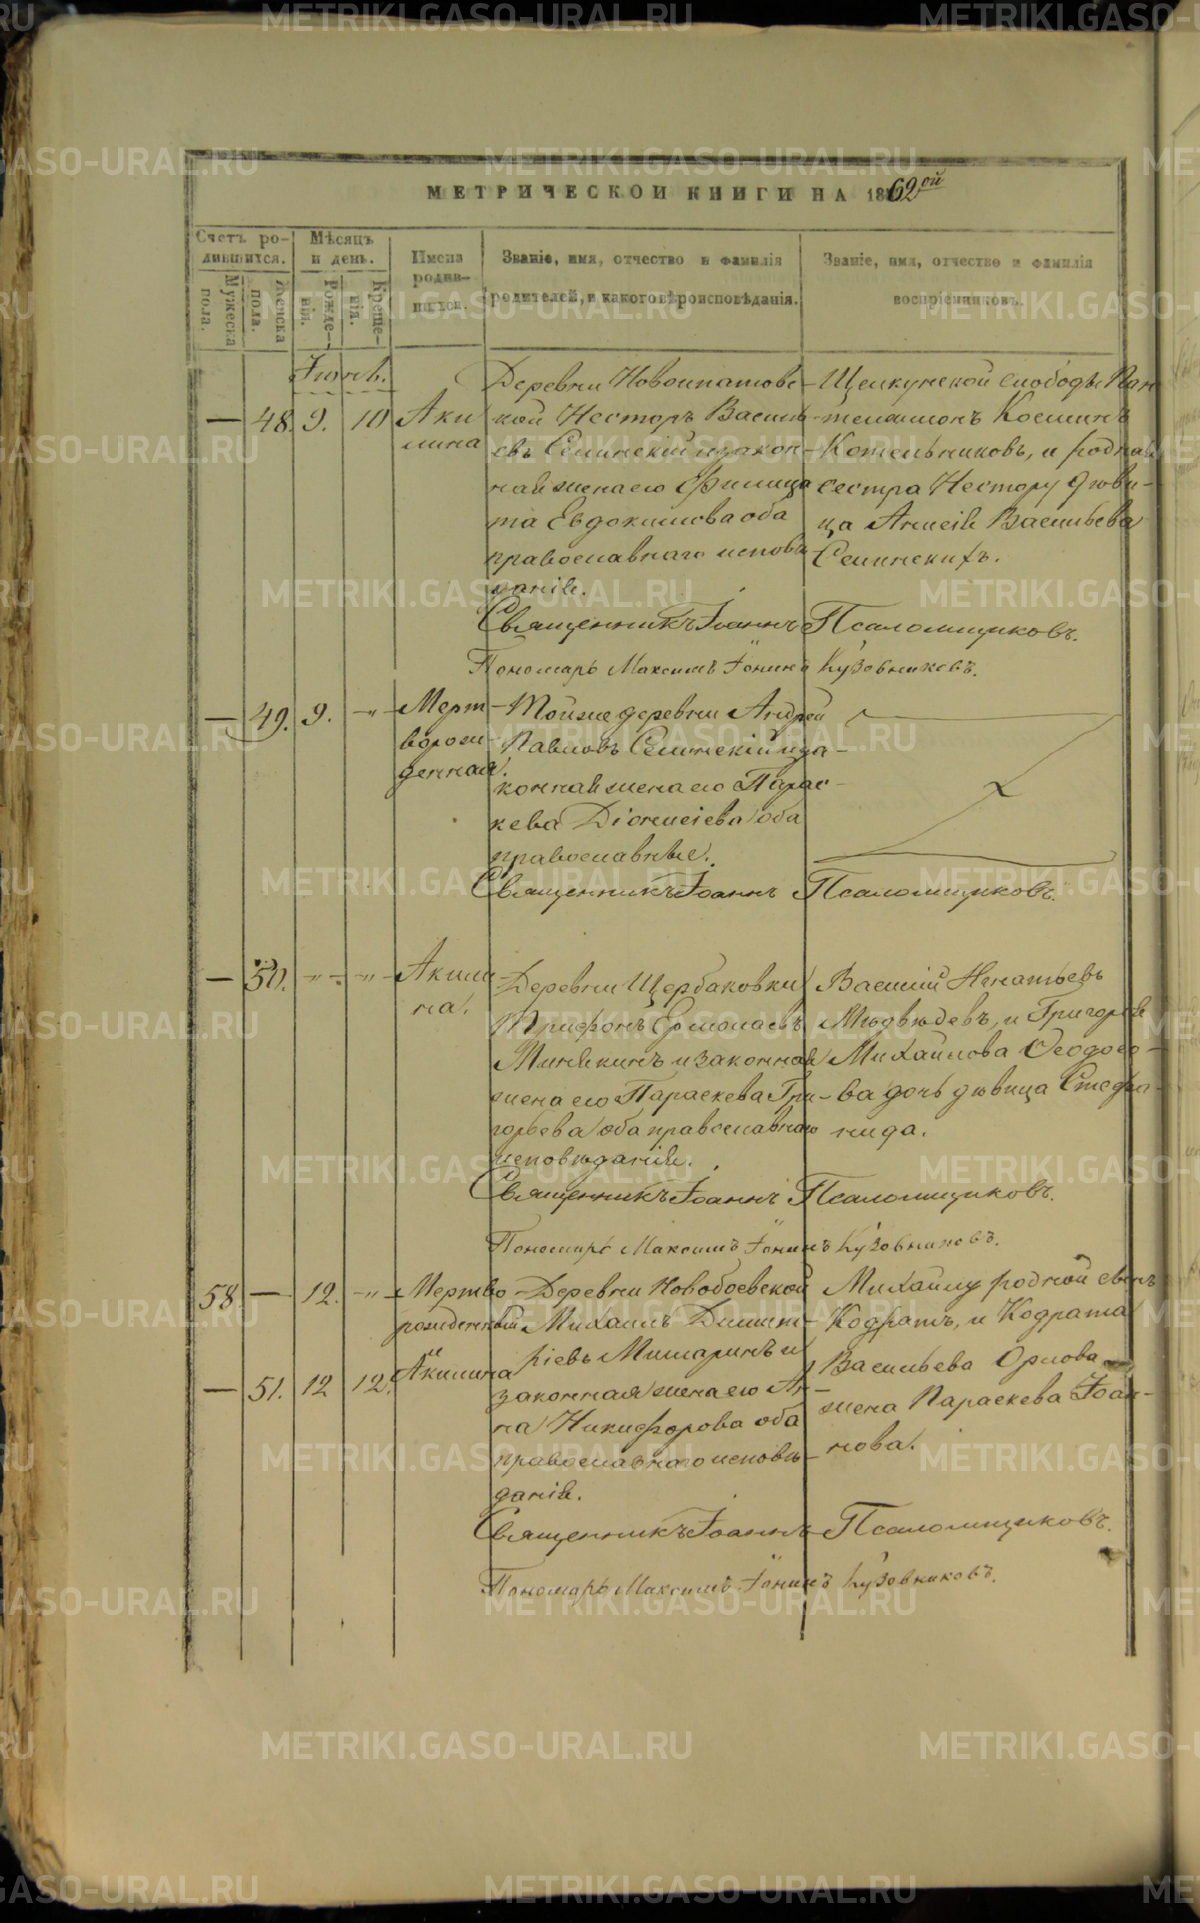 МЕТРИЧЕСКОЙ КНИГИ НА 1862ой
Счетъ родившихся.
Мужеска пола.
Женска пола.
Мѣсяцъ и день.
Рожденія.
Крещенія.
Имена родившихся.
Званіе, имя, отчество и фамилія родителей, и какого вѣроисповѣданія.
Званіе, имя, отчество и фамилія воспріемниковъ.
Іюнь.
— 48. 9. 10 Акилина
Деревни Новоипатовской
Несторъ Васильевъ
Селинскій и законная
жена его Филицата
Евдокимова оба
православнаго исповѣданія.
Щелкунской слободы Пантелеимонъ Косминъ
Котельниковъ, и родная
сестра Нестору дѣвица
Анисія Васильева
Селинскихъ.
Священникъ Іоаннъ Псаломщиковъ.
Пономарь Максимъ Іонинъ Кузовниковъ.
— 49. 9. -"- Мертворожденная.
Тойже деревни Андрей
Павловъ Селинскій и законная
жена его Параскева
Діонисіева оба
православные.
Священникъ Іоаннъ Псаломщиковъ.
— 50. -"- -"- Акилина.
Деревни Щербаковки
Трифонъ Ермолаевъ
Минякинъ и законная
жена его Параскева Григорьева
оба православнаго
исповѣданія.
Василій Игнатьевъ
Мѣдвѣдевъ, и Григорія
Михайлова Ѳеодосова
дочь дѣвица Стефанида.
Священникъ Іоаннъ Псаломщиковъ.
Пономарь Максимъ Іонинъ Кузовниковъ.
58. — 12. -"- Мертворожденный
— 51. 12 12. Акилина
Деревни Новобоевской
Михаилъ Димитріевъ
Мишаринъ и
законная жена его Анна
Никифорова оба
православнаго исповѣданія.
Михаилу родной сынъ
Кодратъ, и Кодрата
Васильева Орлова
жена Параскева Іоаннова.
Священникъ Іоаннъ Псаломщиковъ.
Пономарь Максимъ Іонинъ Кузовниковъ.
METRIKI.GASO-URAL.RU